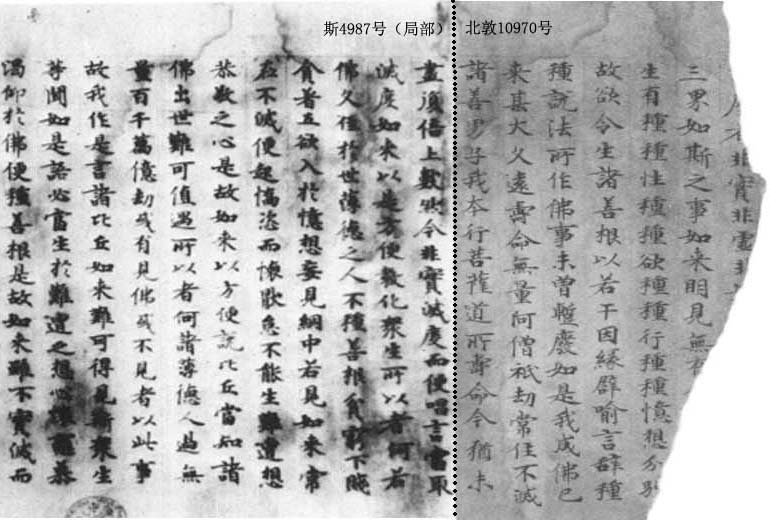 斯4987号（局部）
北敦10970号
者非實非虛非
三界如斯之事如來明見無有
生有種種性種種欲種種行種種憶想分別
故欲令生諸善根以若干因緣譬喻言辭種
種說法所作佛事未曾暫廢如是我成佛已
來甚大久遠壽命無量阿僧祇劫常住不滅
諸善男子我本行菩薩道所壽命今猶未
盡復倍上數然今非實滅度而便唱言當取
滅度如來以是方便教化眾生所以者何若
佛久住於世薄德之人不種善根貧窮下賤
貪著五欲入於憶想妄見網中若見如來常
在不滅便起憍恣而懷厭怠不能生難遭想
恭敬之心是故如來以方便說比丘當知諸
佛出世難可值遇所以者何諸薄德人過無
量百千萬億劫或有見佛或不見者以此事
故我作是言諸比丘如來難可得見斯眾生
等聞如是語必當生於難遭之想心懷戀慕
渴仰於佛便種善根是故如來雖不實滅而